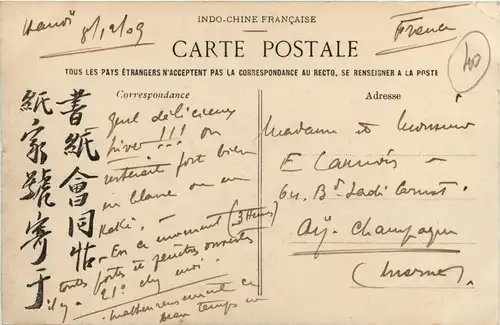 Hanoï 8/12/09
INDO-CHINE FRANÇAISE
France
CARTE POSTALE
TOUS LES PAYS ÉTRANGERS N'ACCEPTENT PAS LA CORRESPONDANCE AU RECTO, SE RENSEIGNER A LA POSTE
Correspondance
Quel délicieux
hiver !!! on
resterait fort bien
en blanc ou en
Kaki. —
— En ce moment (3 heures)
toutes portes et fenêtres ouvertes
il y a 21° chez moi. —
malheureusement ce
beau temps
書紙會同帖
紙家號寄于
Adresse
Madame et Monsieur
E
64, Bd Sadi Carnot.
Aÿ-Champagne
(Marne)